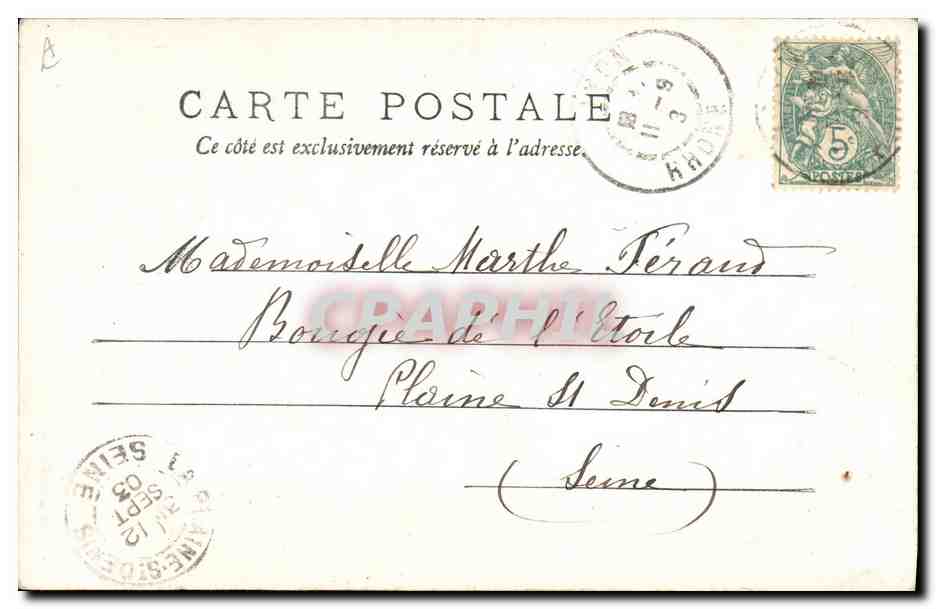 A
CARTE POSTALE
Ce côté est exclusivement réservé à l'adresse.
RHONE
11 - 9
3
5
POSTES
Mademoiselle Marthe Féraud
Bougie dé l'Etoile
Plaine St Denis
(Seine)
CPAPHIL
LA PLAINE-ST DENIS
SEINE
12
SEPT
03